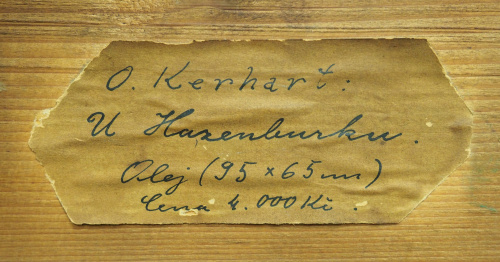 O. Kerhart:
U Hazenburku.
Olej (95 x 65 cm)
Cena 4.000 Kč.